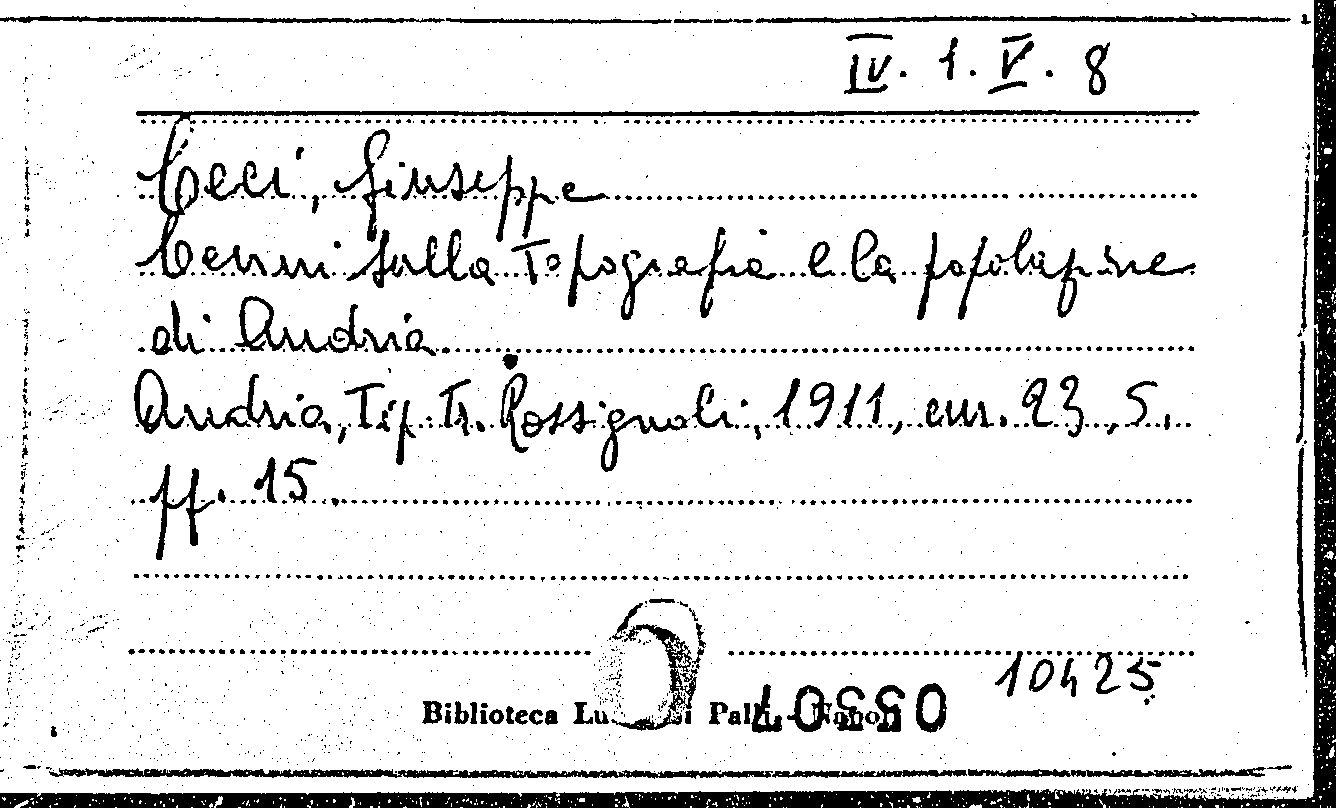 IV. 1. V. 8
Ceci, Giuseppe
Cenni sulla Topografia e la popolazione
di Andria.
Andria, Tip. Fr. Rossignoli, 1911, cm. 23,5.
pp. 15.
10425
Biblioteca Pall - Napoli